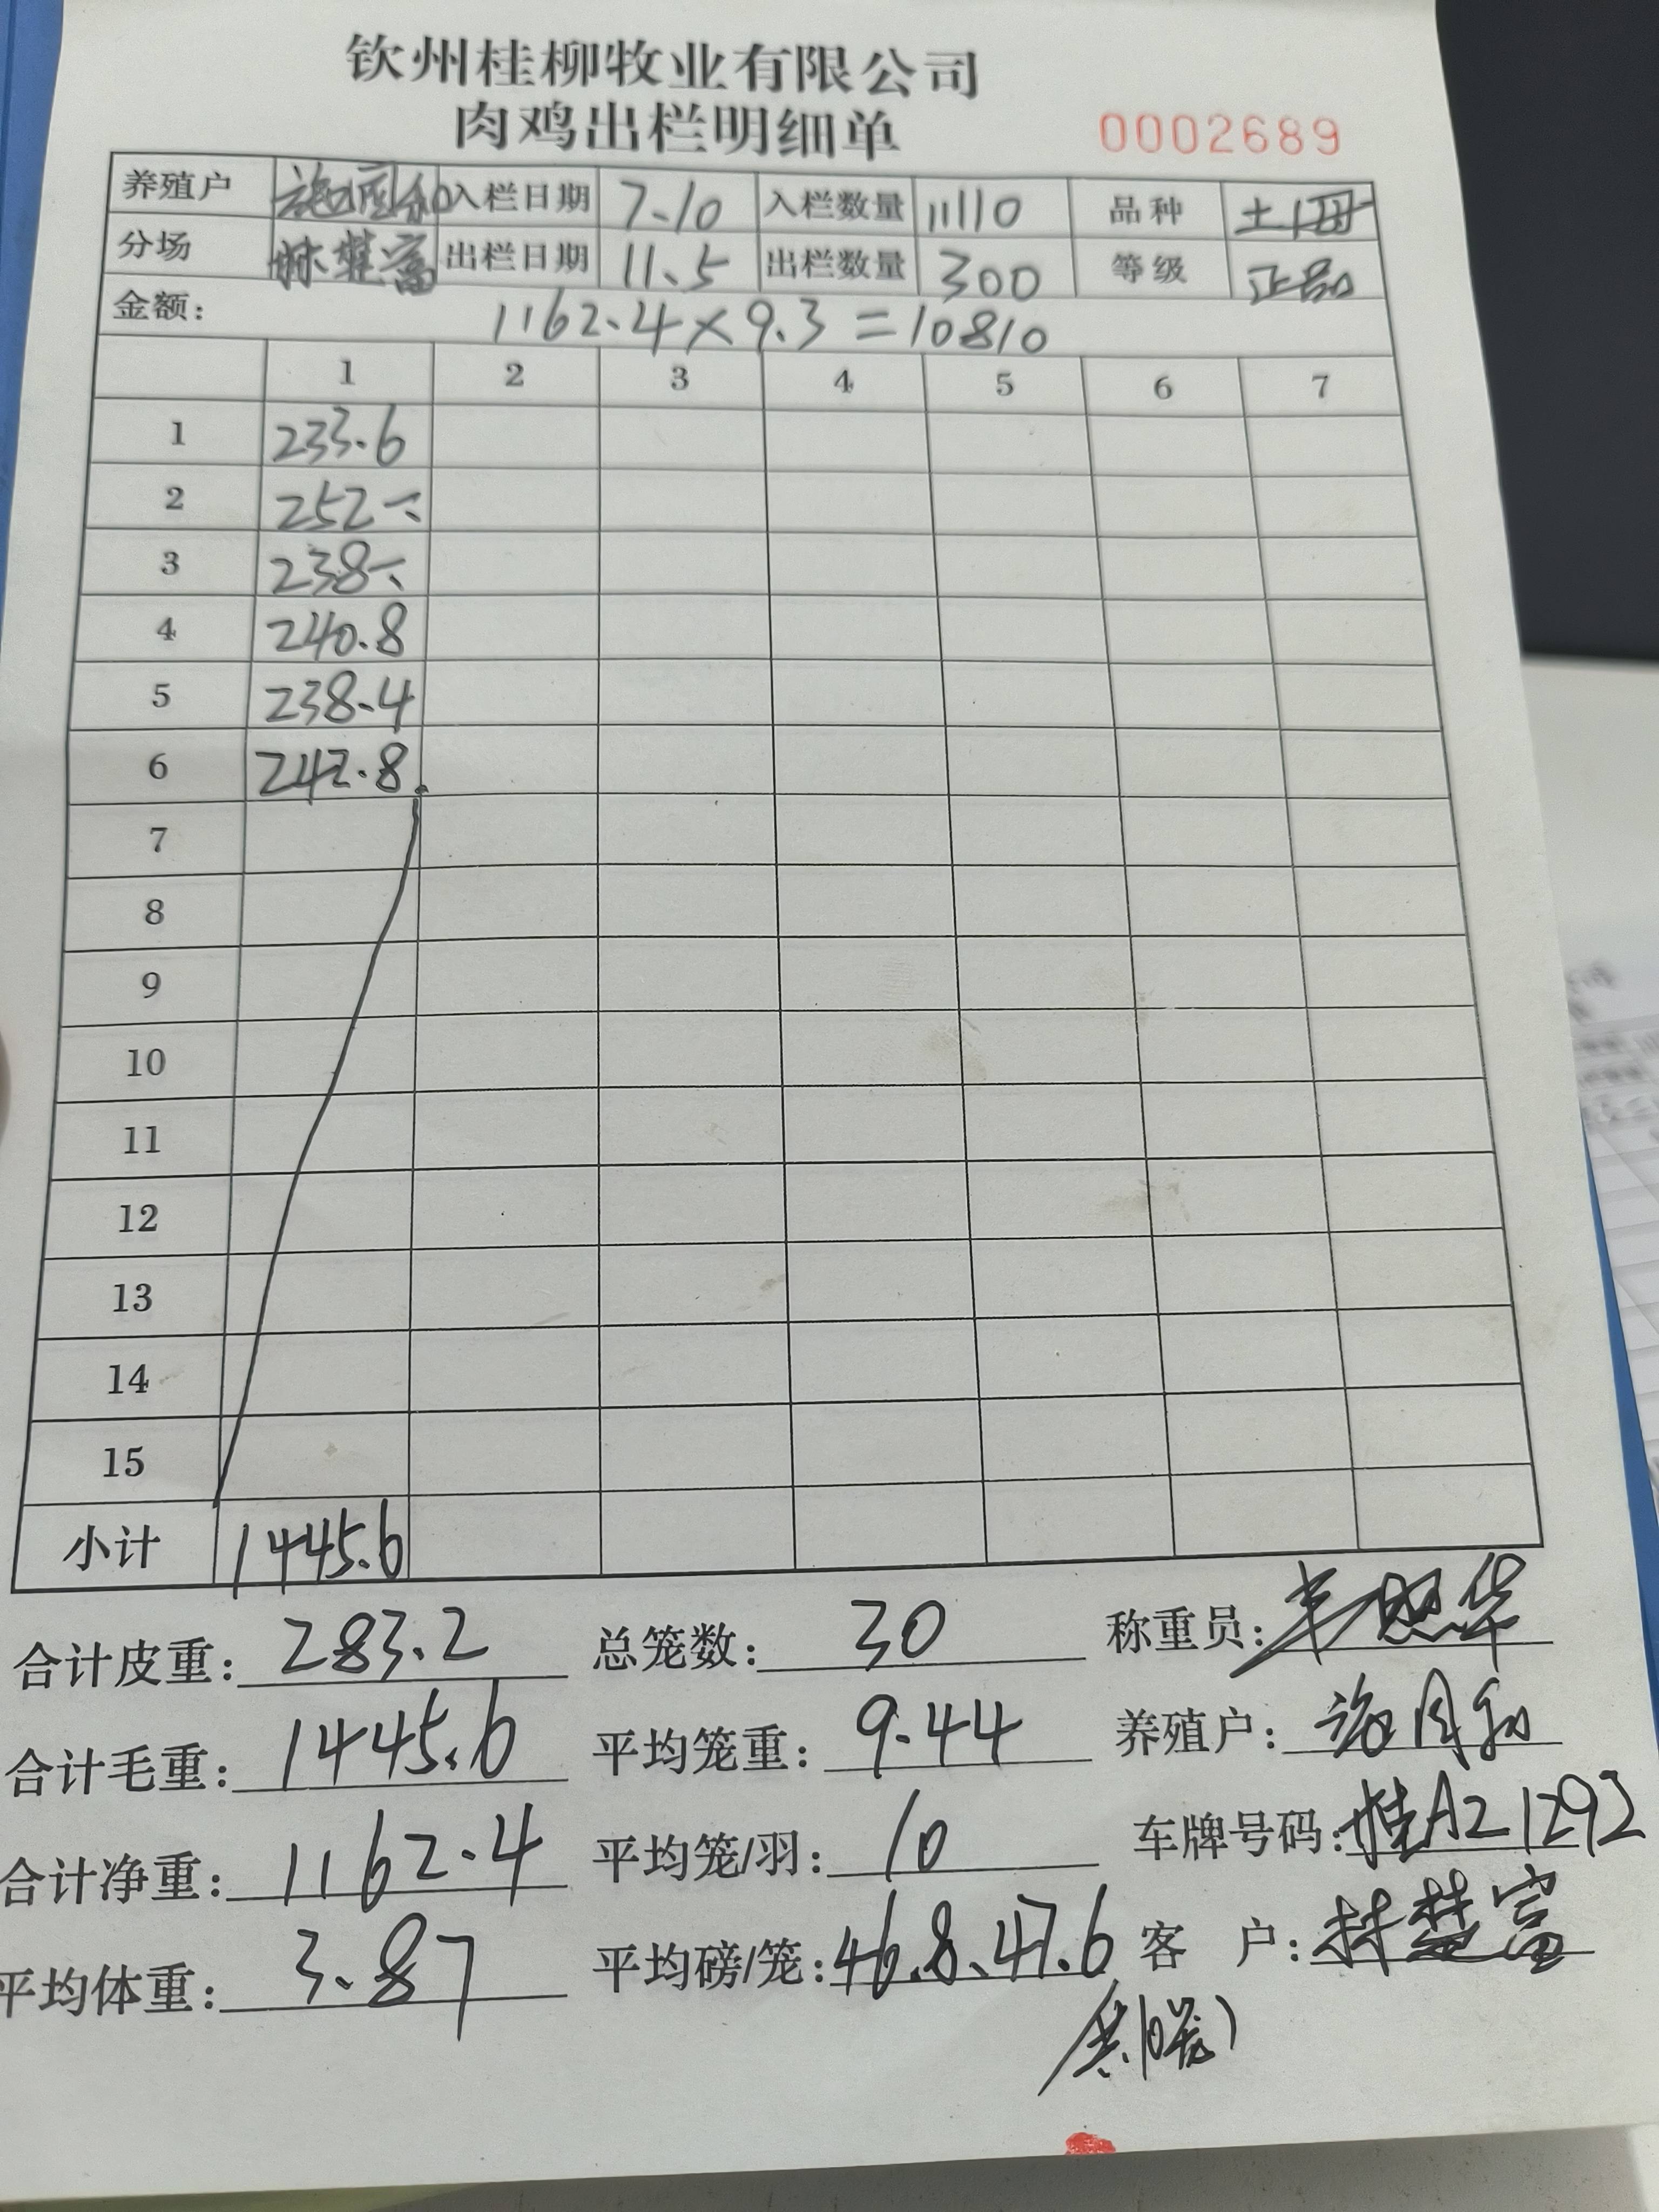 钦州桂柳牧业有限公司
肉鸡出栏明细单
0002689
养殖户 入栏日期 7.10 入栏数量 11110 品种 土1母
分场 林楚富 出栏日期 11.5 出栏数量 300 等级 正品
金额: 1162.4×9.3=10810
1 2 3 4 5 6 7
1 233.6
2 252
3 238
4 240.8
5 238.4
6 242.8
7
8
9
10
11
12
13
14
15
小计 1445.6
合计皮重: 283.2 总笼数: 30 称重员:
合计毛重: 1445.6 平均笼重: 9.44 养殖户:
合计净重: 1162.4 平均笼/羽: 10 车牌号码: 桂AZ1292
平均体重: 3.87 平均磅/笼: 46.8、47.6 客 户: 林楚富